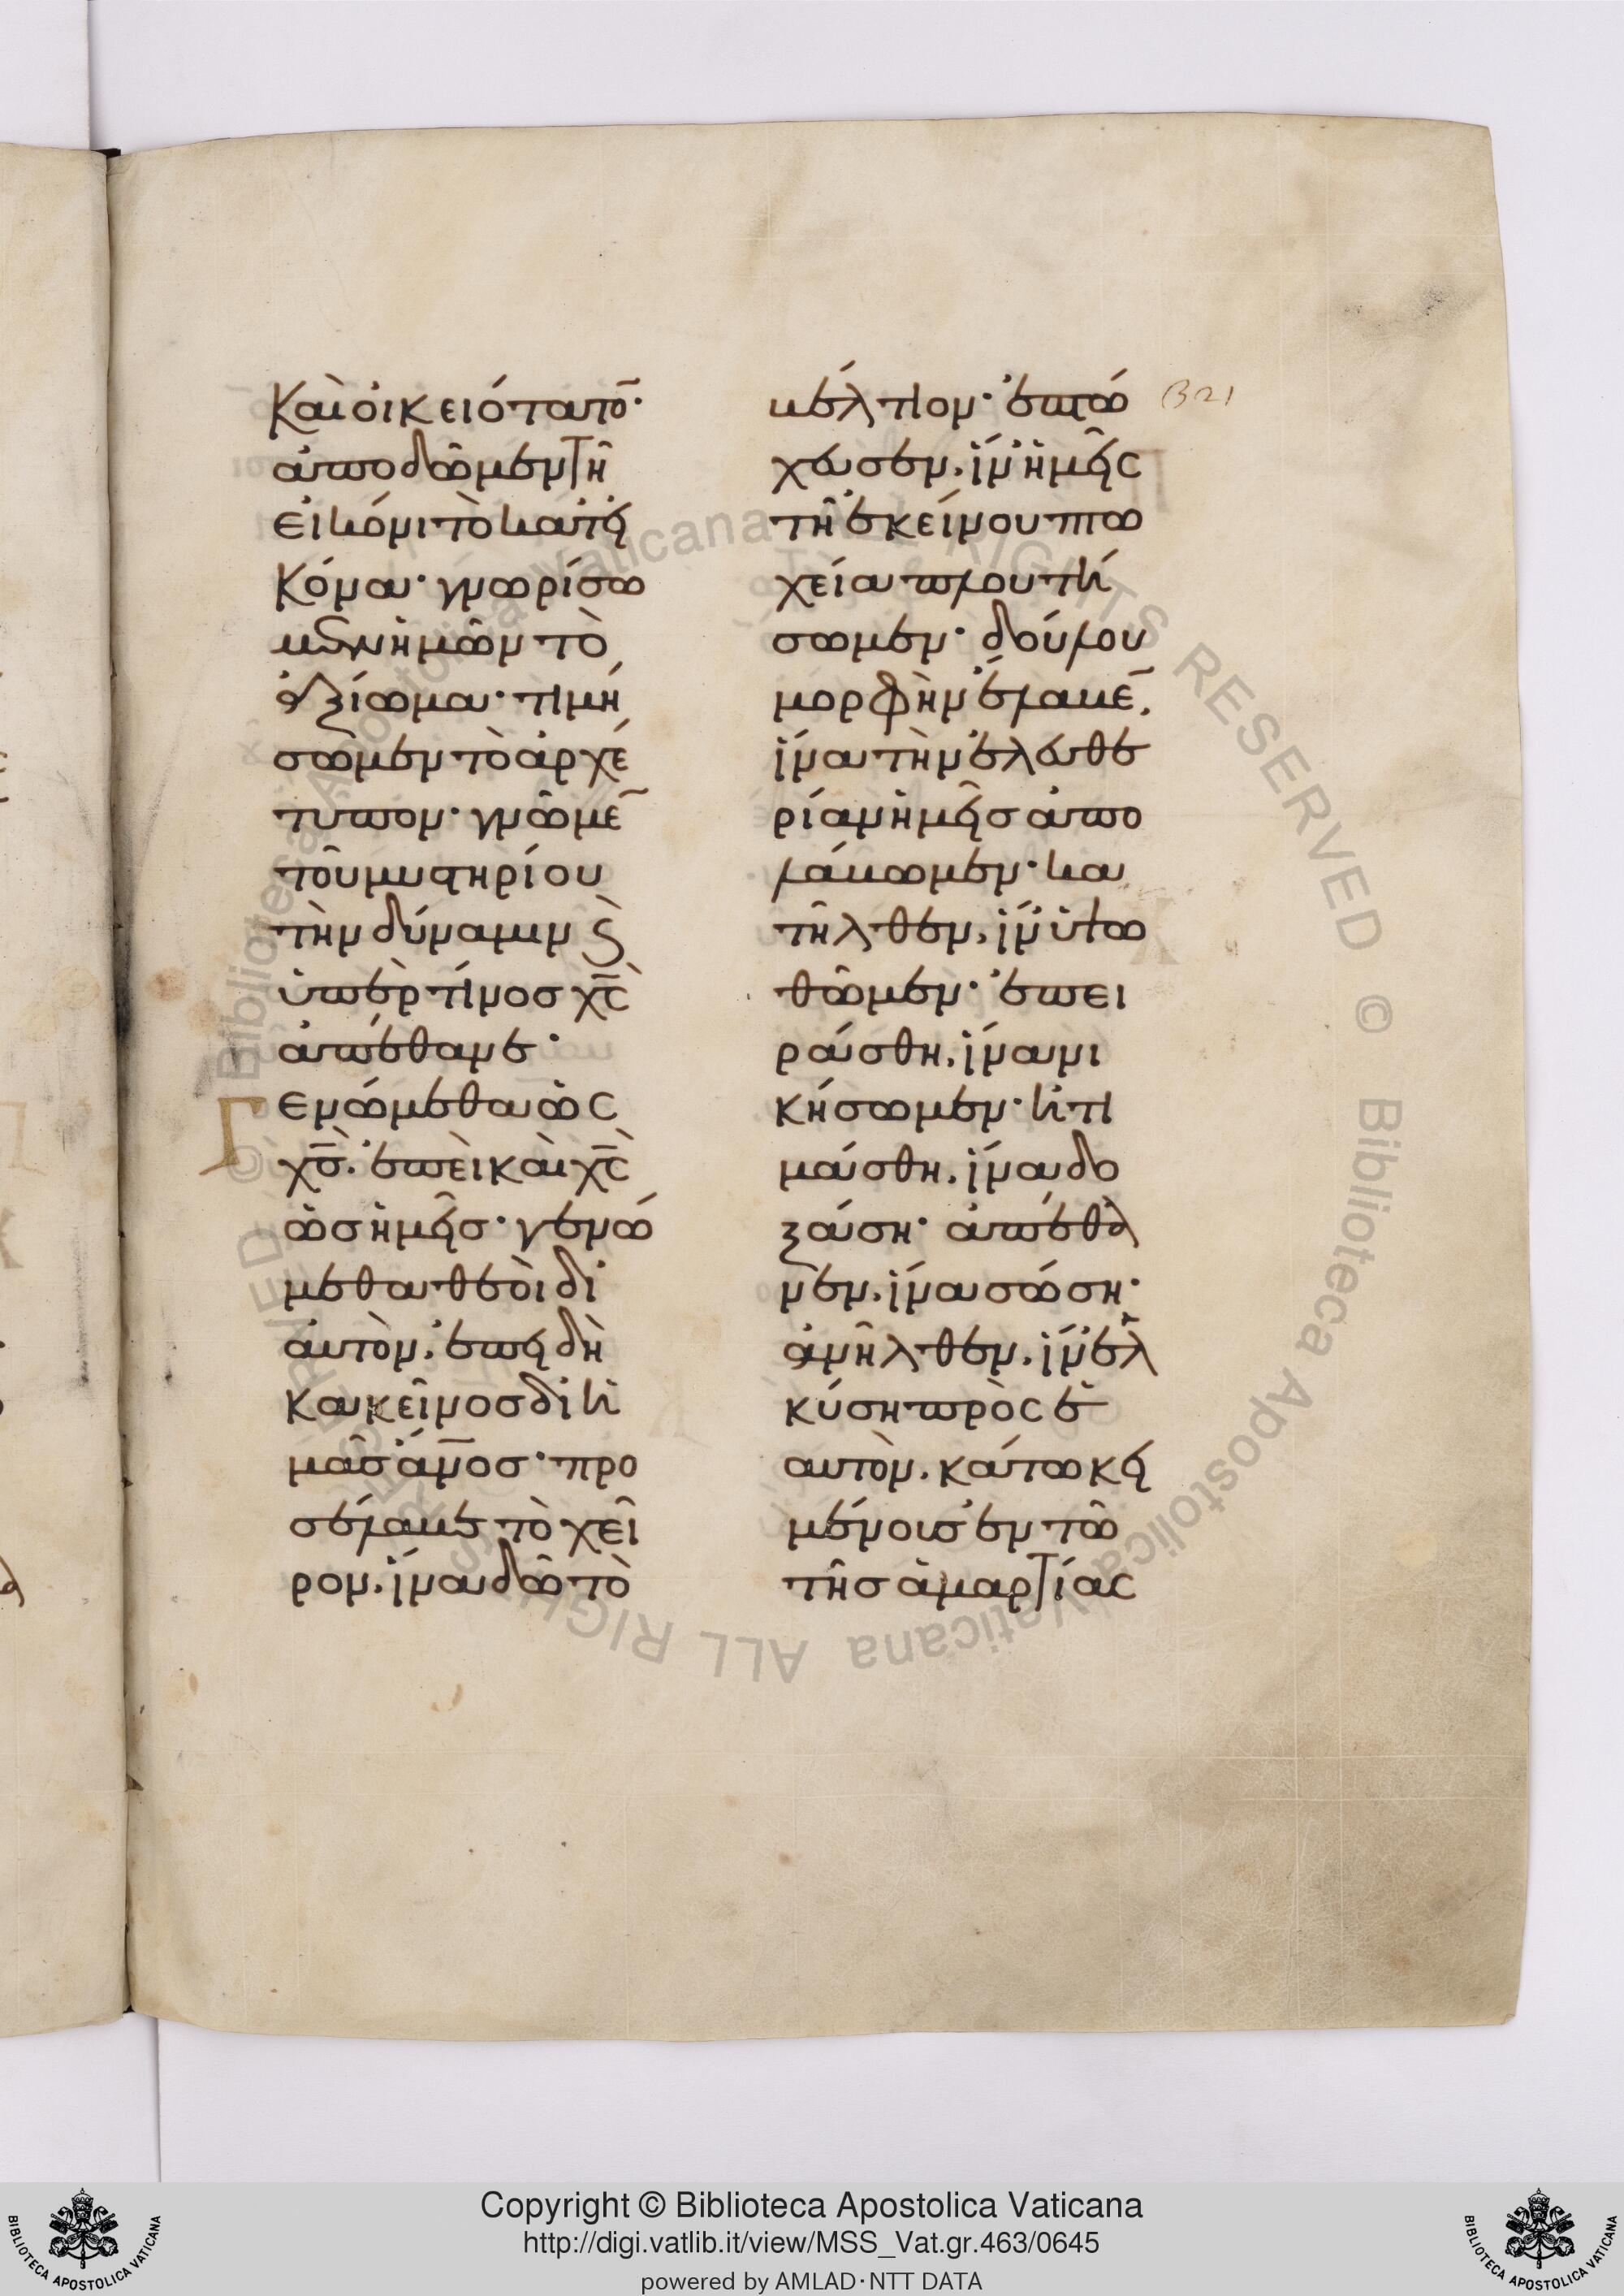 καὶ οἰκειότατο̄·
ἀποδῶμεν τῆ
εἰκόνι τὸ κατ' εἰ
κόνα· γνωρίσω
μεν ἡμῶν τὸ
ἀξίωμα· τιμή
σωμεν τὸ ἀρχέ
τυπον· γνῶμε̄
τοῦ μυστηρίου
τὴν δύναμιν ϗ
ὑπὲρ τίνος χ̅ς̅
ἀπέθανε·
Γενώμεθα ὡς
χ̅σ̅. ἐπεὶ καὶ χ̅ς̅
ὡς ἡμεῖς· γενώ
μεθα θεοὶ δι'
αὐτὸν. ἐπειδὴ
κἀκεῖνος δι' ἡ
μᾶς ἄν̅ος· προ
σέλαβε τὸ χεῖ
ρον. ἵνα δῶ τὸ
βέλτιον· ἐπτώ
χευσεν. ἵν' ἡμεῖς
τῆ ἐκείνου πτω
χεία πλουτή
σωμεν· δούλου
μορφὴν ἔλαβε̄.
ἵνα τὴν ἐλευθε
ρίαν ἡμεῖς ἀπο
λάβωμεν· κα
τῆλθεν. ἵν' ὑψω
θῶμεν· ἐπει
ράσθη. ἵνα νι
κήσωμεν· ἠτι
μάσθη. ἵνα δο
ξάση· ἀπέθα
νεν. ἵνα σώση·
ἀνῆλθεν. ἵν' ἑλ
κύση πρὸς ἑ
αυτὸν. κάτω κει
μένους ἐν τῶ
τῆς ἁμαρτίας
321
Copyright © Biblioteca Apostolica Vaticana
http://digi.vatlib.it/view/MSS_Vat.gr.463/0645
powered by AMLAD·NTT DATA
BIBLIOTECA APOSTOLICA VATICANA
BIBLIOTECA APOSTOLICA VATICANA
© Biblioteca Apostolica Vaticana ALL RIGHTS RESERVED © Biblioteca Apostolica Vaticana ALL RIGHTS RESERVED